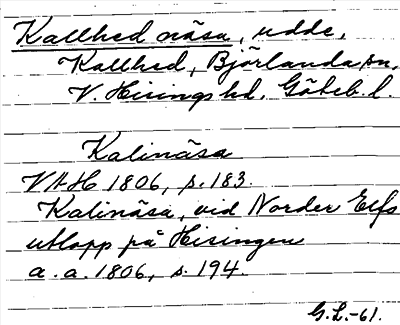 Kallhed näsa, udde,
Kallhed, Björlanda sn,
V. Hisings hd. Göteb. l.
Kalinäsa
VAH 1806, s. 183.
Kalinäsa, vid Norder Elfs
utlopp på Hisingen
a. a. 1806, s. 194.
G.L.-61.